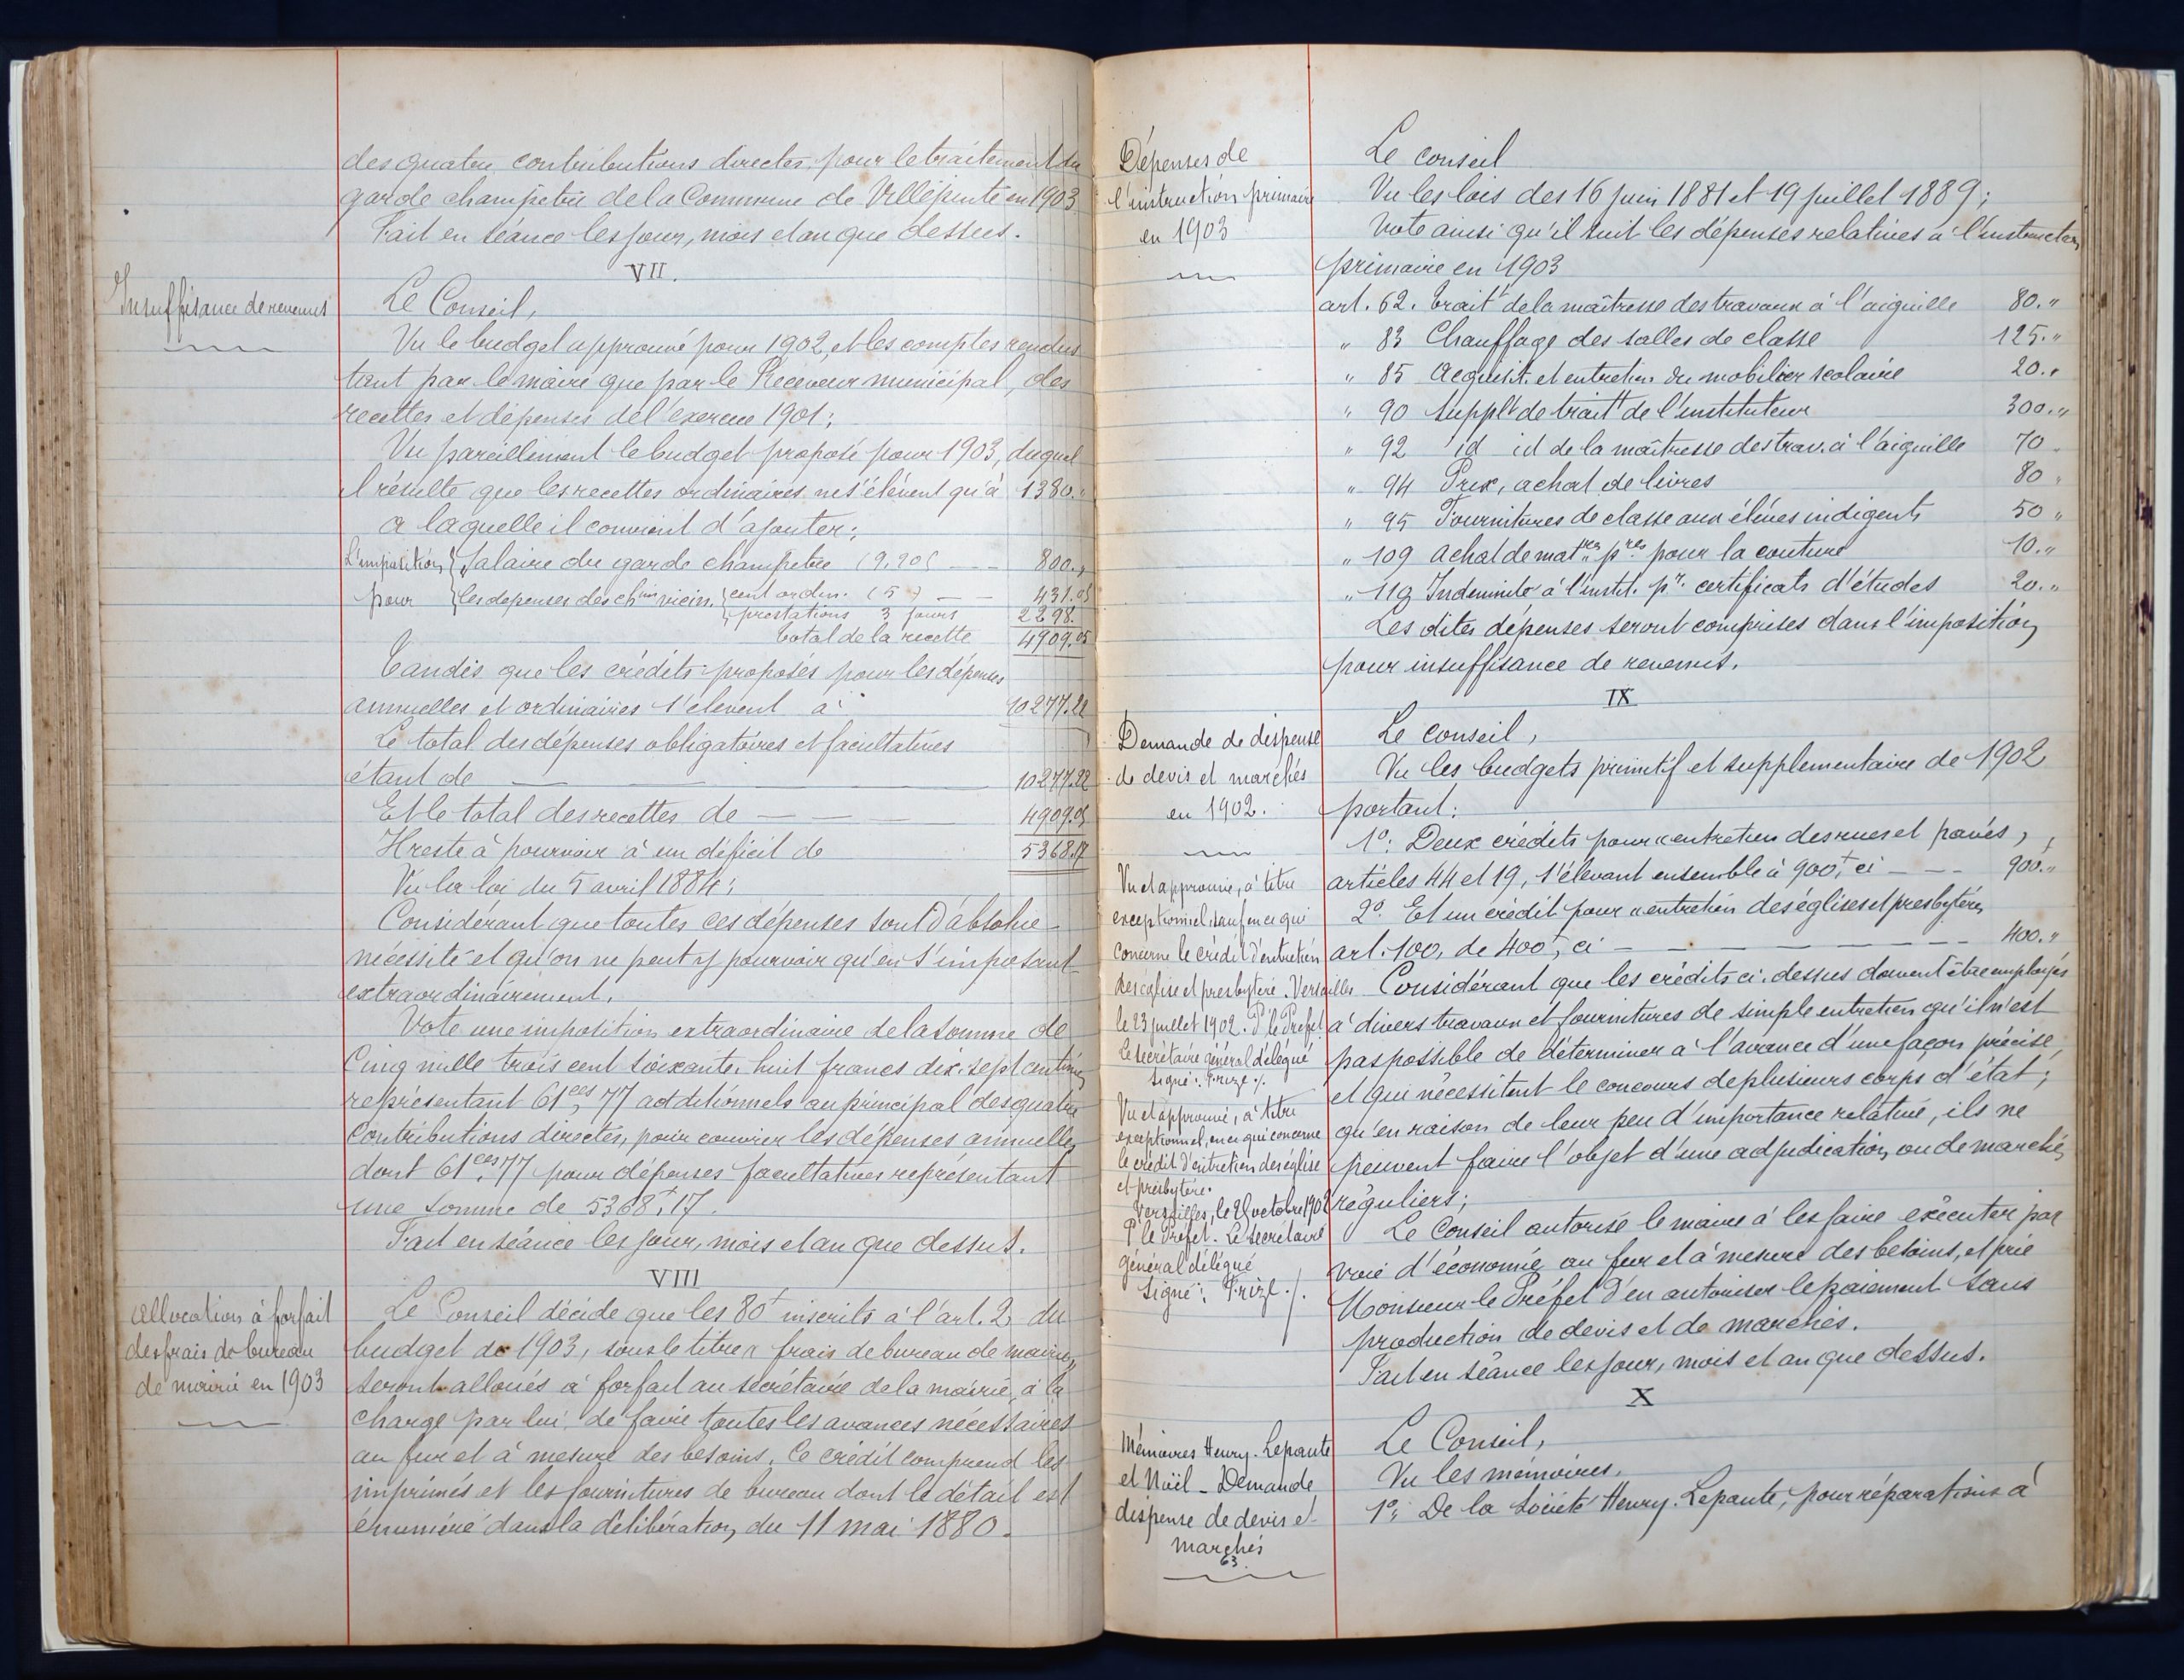 des quatre contributions directes pour le traitement du
garde champêtre de la Commune de Villepinte en 1903
Fait en séance les jour, mois et an que dessus.
VII.
Insuffisance de revenus
Le Conseil,
Vu le budget approuvé pour 1902, et les comptes rendus
tant par le maire que par le Receveur municipal, des
recettes et dépenses de l'exercice 1901;
Vu pareillement le budget proposé pour 1903, duquel
il résulte que les recettes ordinaires ne s'élèvent qu'à 1380."
a laquelle il convient d'ajouter:
L'imposition { Salaire du garde champêtre (9,20) - - - 800."
pour { les dépenses des ch.ins vicin. { cent. ordin. (5) - - 431.05
{ prestations 3 jours 2298.
Total de la recette 4909.05
Tandis que les crédits proposés pour les dépenses
annuelles et ordinaires s'élèvent à 10277.22
Le total des dépenses obligatoires et facultatives
étant de 10277.22
Et le total des recettes de 4909.05
Il reste à pourvoir à un déficit de 5368.17
Vu la loi du 5 avril 1884;
Considérant que toutes ces dépenses sont d'absolue
nécessité et qu'on ne peut y pourvoir qu'en s'imposant
extraordinairement.
Vote une imposition extraordinaire de la somme de
Cinq mille trois cent soixante-huit francs dix-sept centimes
représentant 61ces,77 additionnels au principal des quatre
contributions directes, pour couvrir les dépenses annuelles
dont 61ces,77 pour dépenses facultatives représentant
une somme de 5368f,17.
Fait en séance les jour, mois et an que dessus.
VIII
allocation à forfait
des frais de bureau
de mairie en 1903
Le Conseil décide que les 80f inscrits à l'art. 2 du
budget de 1903, sous le titre « frais de bureau de mairie»
seront alloués à forfait au secrétaire de la mairie, à la
charge par lui de faire toutes les avances nécessaires
au fur et à mesure des besoins. Ce crédit comprend les
imprimés et les fournitures de bureau dont le détail est
énuméré dans la délibération du 11 mai 1880.
Dépenses de
l'instruction primaire
en 1903
Le conseil
Vu les lois des 16 juin 1881 et 19 juillet 1889;
Vote ainsi qu'il suit les dépenses relatives à l'instruction
primaire en 1903
art. 62. Trait.t de la maîtresse des travaux à l'aiguille 80."
" 83 Chauffage des salles de classe 125."
" 85 Acquisit. et entretien du mobilier scolaire 20."
" 90 Supplt de trait.t de l'instituteur 300."
" 92 id id de la maîtresse des trav. à l'aiguille 70
" 94 Prix, achat de livres 80 "
" 95 Fournitures de classe aux élèves indigents 50 "
" 109 Achat de mat.res p.res pour la couture 10."
" 119 Indemnité à l'instit. pr. certificats d'études 20."
Les dites dépenses seront comprises dans l'imposition
pour insuffisance de revenus.
IX
Demande de dispense
de devis et marchés
en 1902.
Le conseil,
Vu les budgets primitif et supplementaire de 1902
portant:
1º: Deux crédits pour «entretien des rues et pavés»,
articles 44 et 19, s'élevant ensemble à 900f, ci - - - 900."
2º. Et un crédit pour «entretien des églises et presbytères
art. 100, de 400f, ci - - - 400."
Considérant que les crédits ci-dessus doivent être employés
à divers travaux et fournitures de simple entretien qu'il n'est
pas possible de déterminer à l'avance d'une façon précise,
et qui nécessitent le concours de plusieurs corps d'état;
qu'en raison de leur peu d'importance relative, ils ne
peuvent faire l'objet d'une adjudication, ou de marchés
réguliers;
Le Conseil autorise le maire à les faire exécuter par
voie d'économie au fur et à mesure des besoins, et prie
Monsieur le Préfet d'en autoriser le paiement sans
production de devis et de marchés.
Fait en séance les jour, mois et an que dessus.
Vu et approuvé, à titre
exceptionnel, sauf en ce qui
concerne le crédit d'entretien
des église et presbytère. Versailles
le 23 juillet 1902. Pr le Préfet
Le Secrétaire général délégué
Signé: Frize ./.
Vu et approuvé, à titre
exceptionnel, en ce qui concerne
le crédit d'entretien des église
et presbytère.
Versailles, le 28 octobre 1902
Pr le Préfet. Le Secrétaire
général délégué
Signé: Frize ./.
X
Mémoires Henry-Lepaute
et Noël - Demande
dispense de devis et
marchés
63
Le Conseil,
Vu les mémoires.
1º: De la Société Henry-Lepaute, pour réparations à